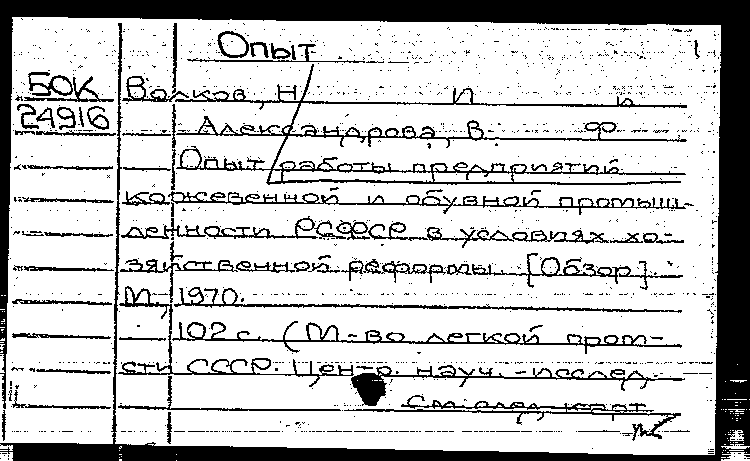 Опыт
1
БОК
24916
Волков, Н И и
Александрова, В. Ф
Опыт работы предприятий
кожевенной и обувной промыш-
ленности РСФСР в условиях хо-
зяйственной реформы. [Обзор].
М., 1970.
102 с. (М-во легкой пром-
сти СССР. Центр. науч.-исслед.
См. след. карт.